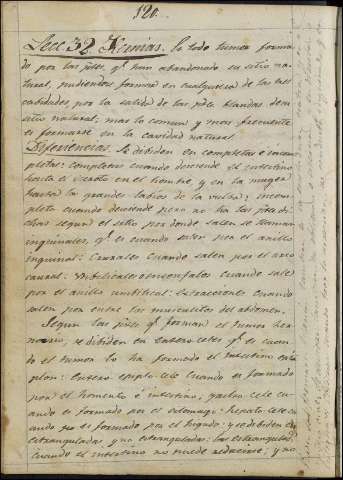 120.
Lecc. 32. Hernias. Es todo tumor forma-
do por las ptes. qe. han abandonado su sitio na-
tural, pudiendose formar en cualquiera de las tres
cabidades por la salida de las ptes. blandas de su
sitio natural; mas lo comun y mas frecuente
es formarse en la cavidad natural.
Diferencias. Se dibiden en completas é incom-
pletas: completas cuando desciende el intestino
hasta el escroto en el hombre y en la muger
hasta los grandes labios de la vulva; incom-
pleta cuando desciende pero no ha las ptes. di-
chas segun el sitio por donde salen se llaman
inguinales, qe. es cuando salen por el anillo
inguinal: Crurales cuando salen por el arco
crural: Umbilicales cuando sale
por el anillo umbilical: cuando
salen por entre los musculos del abdomen.
Segun las ptes. qe. forman el tumor her-
, se dibiden en Entero celes qe. es cuan-
do el tumor lo ha formado el intestino
: Entero epiplo cele Cuando es formado
por el homento é intestino, gastro cele cu-
ando es formado por el estomago: hepato cele cu-
ando es formado por el higado: y se dibiden en
estranguladas y no estranguladas: las estranguladas
cuando el intestino no puede reducirse; y no